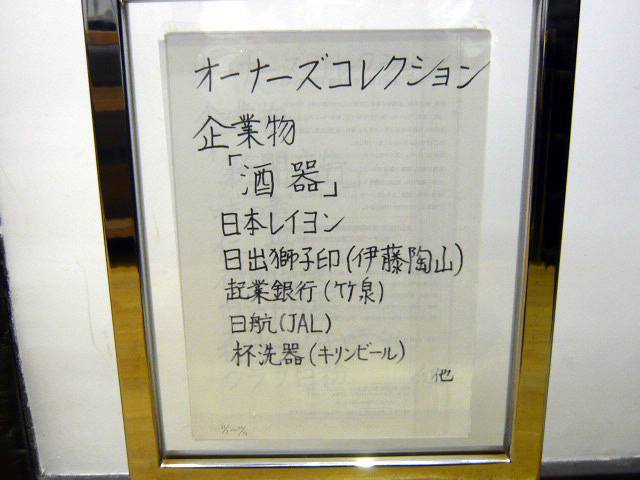 オーナーズコレクション
企業物
「酒器」
日本レイヨン
日出獅子印(伊藤陶山)
起業銀行(竹泉)
日航(JAL)
杯洗器(キリンビール)
他